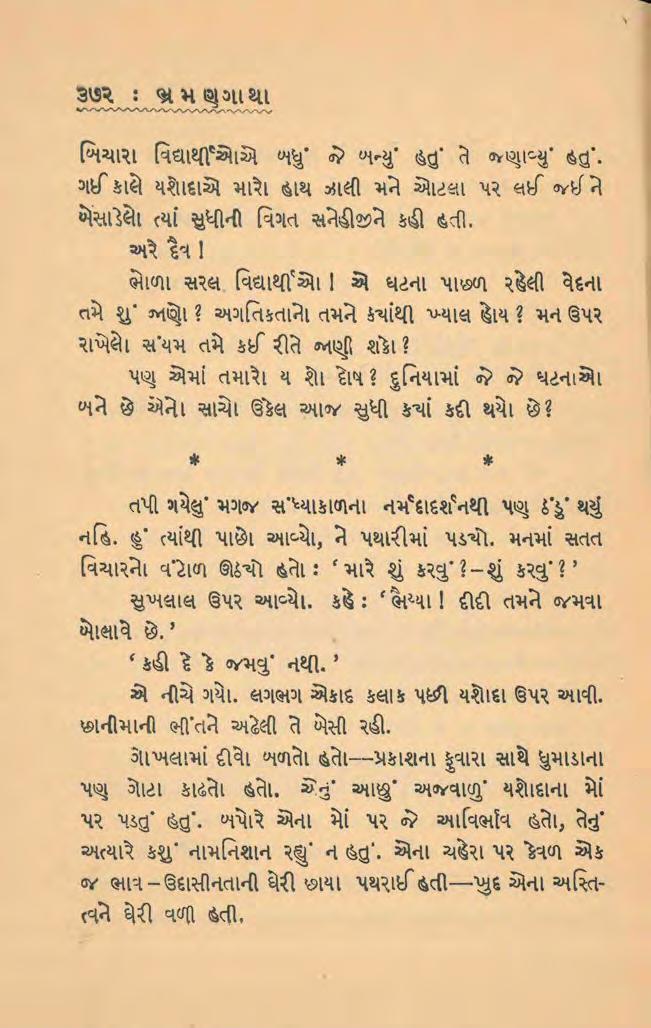 ૩૭૨ : ભ્રમણગાથા
બિચારા વિદ્યાર્થીઓએ બધું જે બન્યું હતું તે જણાવ્યું હતું.
ગઈ કાલે યશોદાએ મારો હાથ ઝાલી મને ઓટલા પર લઈ જઈ ને
બેસાડેલો ત્યાં સુધીની વિગત સનેહીજીને કહી હતી.
અરે દૈવ !
ભોળા સરલ વિદ્યાર્થીઓ ! એ ઘટના પાછળ રહેલી વેદના
તમે શું જાણો ? અગતિકતાનો તમને ક્યાંથી ખ્યાલ હોય ? મન ઉપર
રાખેલો સંયમ તમે કઈ રીતે જાણી શકો ?
પણ એમાં તમારો ય શો દોષ ? દુનિયામાં જે જે ઘટનાઓ
બને છે એનો સાચો ઉકેલ આજ સુધી ક્યાં કદી થયો છે ?
* * *
તપી ગયેલું મગજ સંધ્યાકાળના નર્મદાદર્શનથી પણ ઠંડું થયું
નહિ. હું ત્યાંથી પાછો આવ્યો, ને પથારીમાં પડ્યો. મનમાં સતત
વિચારનો વંટોળ ઊઠ્યો હતો : ‘ મારે શું કરવું ?–શું કરવું ? ’
સુખલાલ ઉપર આવ્યો. કહે : ‘ ભૈય્યા ! દીદી તમને જમવા
બોલાવે છે. ’
‘ કહી દે કે જમવું નથી. ’
એ નીચે ગયો. લગભગ એકાદ કલાક પછી યશોદા ઉપર આવી.
છાનીમાની ભીંતને અઢેલી તે બેસી રહી.
ગોખલામાં દીવો બળતો હતો—પ્રકાશના ફુવારા સાથે ધુમાડાના
પણ ગોટા કાઢતો હતો. એનું આછું અજવાળું યશોદાના મોં
પર પડતું હતું. બપોરે એના મોં પર જે આવિર્ભાવ હતો, તેનું
અત્યારે કશું નામનિશાન રહ્યું ન હતું. એના ચહેરા પર કેવળ એક
જ ભાવ – ઉદાસીનતાની ઘેરી છાયા પથરાઈ હતી—ખુદ એના અસ્તિ-
ત્વને ઘેરી વળી હતી.